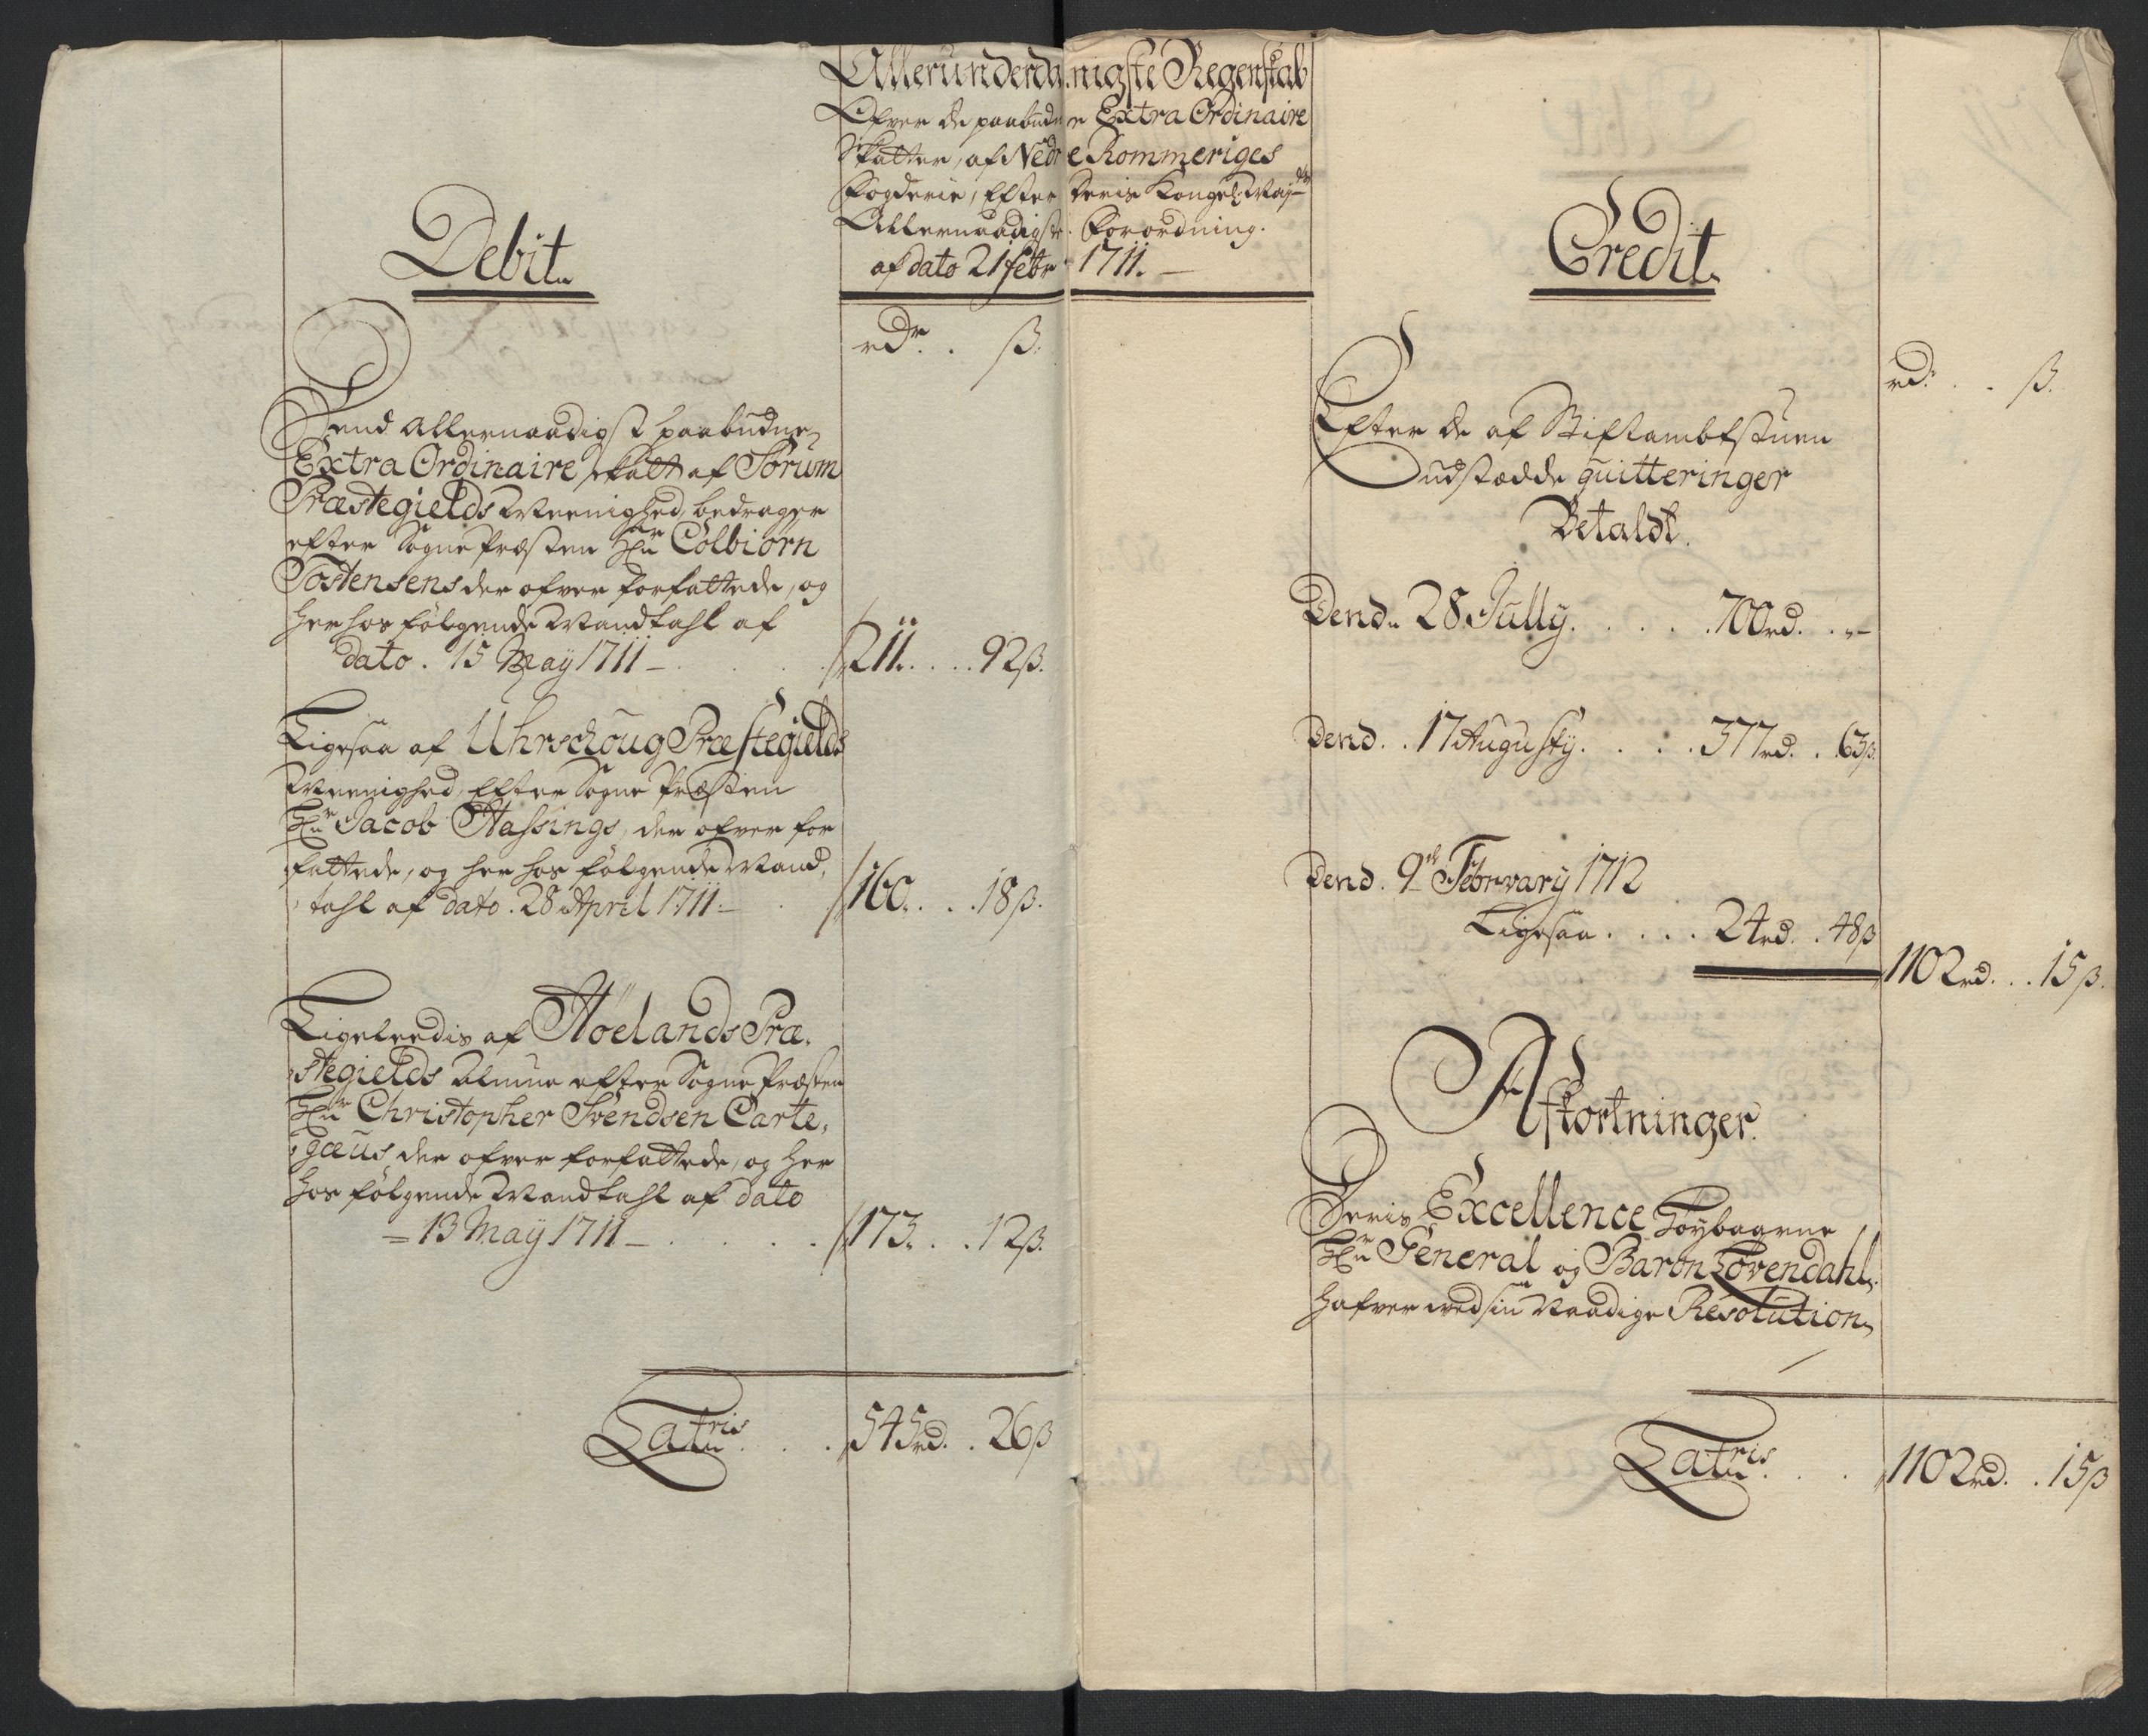 Allerunderdanigste Regenskab
Ofver de paabudne Extra Ordinaire
Skatter, af Nedre Rommeriges
Fogderie, Efter Deris Kongel: May:ts
Allernaadigste Forordning.
af dato 21 febr: 1711. —
Debit
rdr. . ß.
Dend Allernaadigst paabudne
Extra Ordinaire skatt af Sörum
Præstegields Meenighed, bedrager
efter Sogne Præsten Hr Colbiörn
Tostensens der ofver forfattede, og
her hos fölgende Mandtahl af
dato. 15 May 1711 — . . . 211. . . . 92 ß.
Ligesaa af Uhrschoug Præstegields
Meenighed, Efter Sogne Præsten
Hr Jacob Hassings, der ofver for
fattede, og her hos fölgende Mand,
tahl af dato. 28 April 1711. — . 160. . . . 18 ß.
Ligeleedis af Höelands Præ,
stegields Almue efter Sogne Præsten
Hr Christopher Svendsen Carte,
gæus der ofver forfattede, og her
hos fölgende Mandtahl af dato
= 13 May 1711 — . . . . 173. . . 12 ß.
Latris . . . 545 rd. . 26 ß
Credit
rd. . . ß.
Efter de af Stiftambtstuen
udstædde quitteringer
Betaldt.
Dend. 28. Jully. . . . . 700 rd. . „ —
Dend. . 17 Augusty. . . . . 377 rd. . 63 ß.
Dend. 9de February 1712
Ligesaa. . . . . 24 rd. . 48 ß
1102 rd. . . 15 ß.
Afkortninger.
Deris Excellence Höybaarne
Hr General og Baron Lövendahl,
hafver ved sin Naadige Resolution,
Latris. . . . 1102 rd. . 15 ß